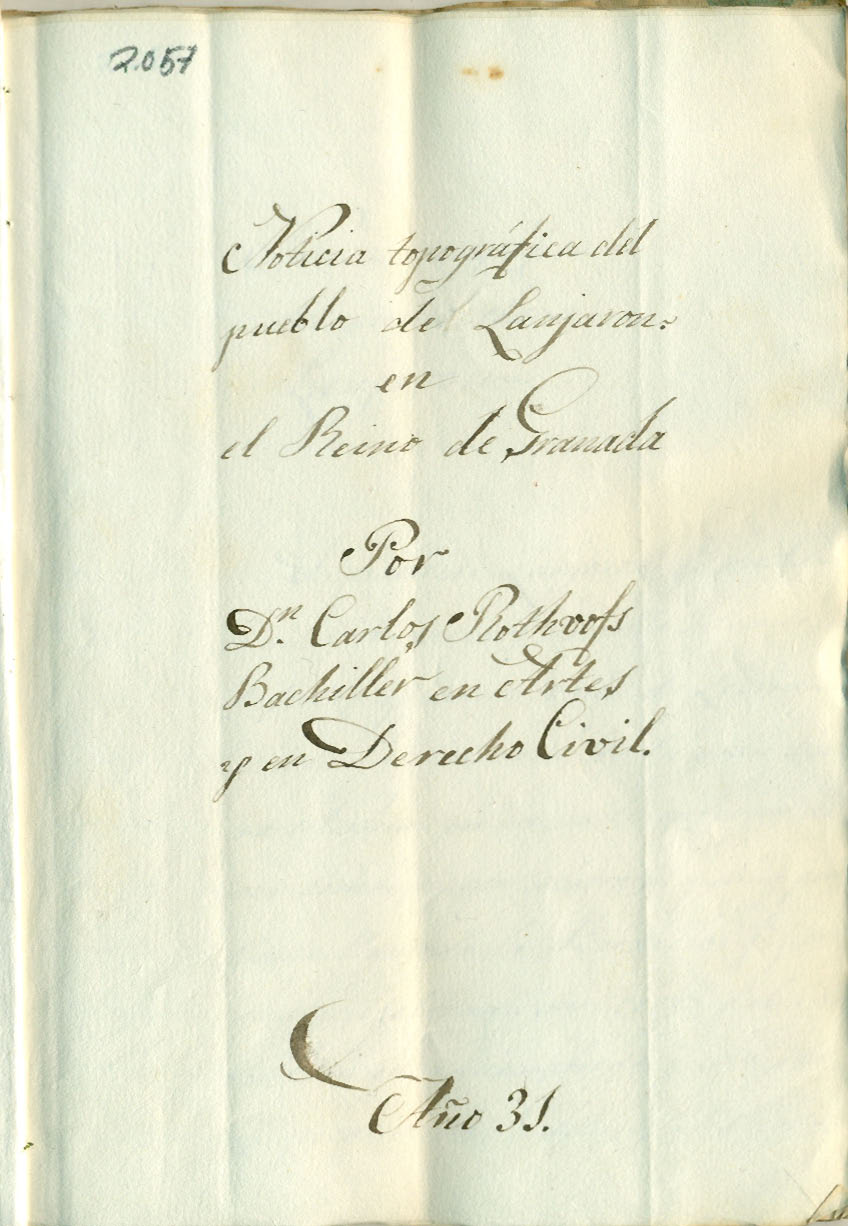 2.057
Noticia topográfica del
pueblo de Lanjaron.
en
el Reino de Granada
Por
Dn. Carlos Rothvoſs
Bachiller en Artes
y en Derecho Civil.
Año 31.